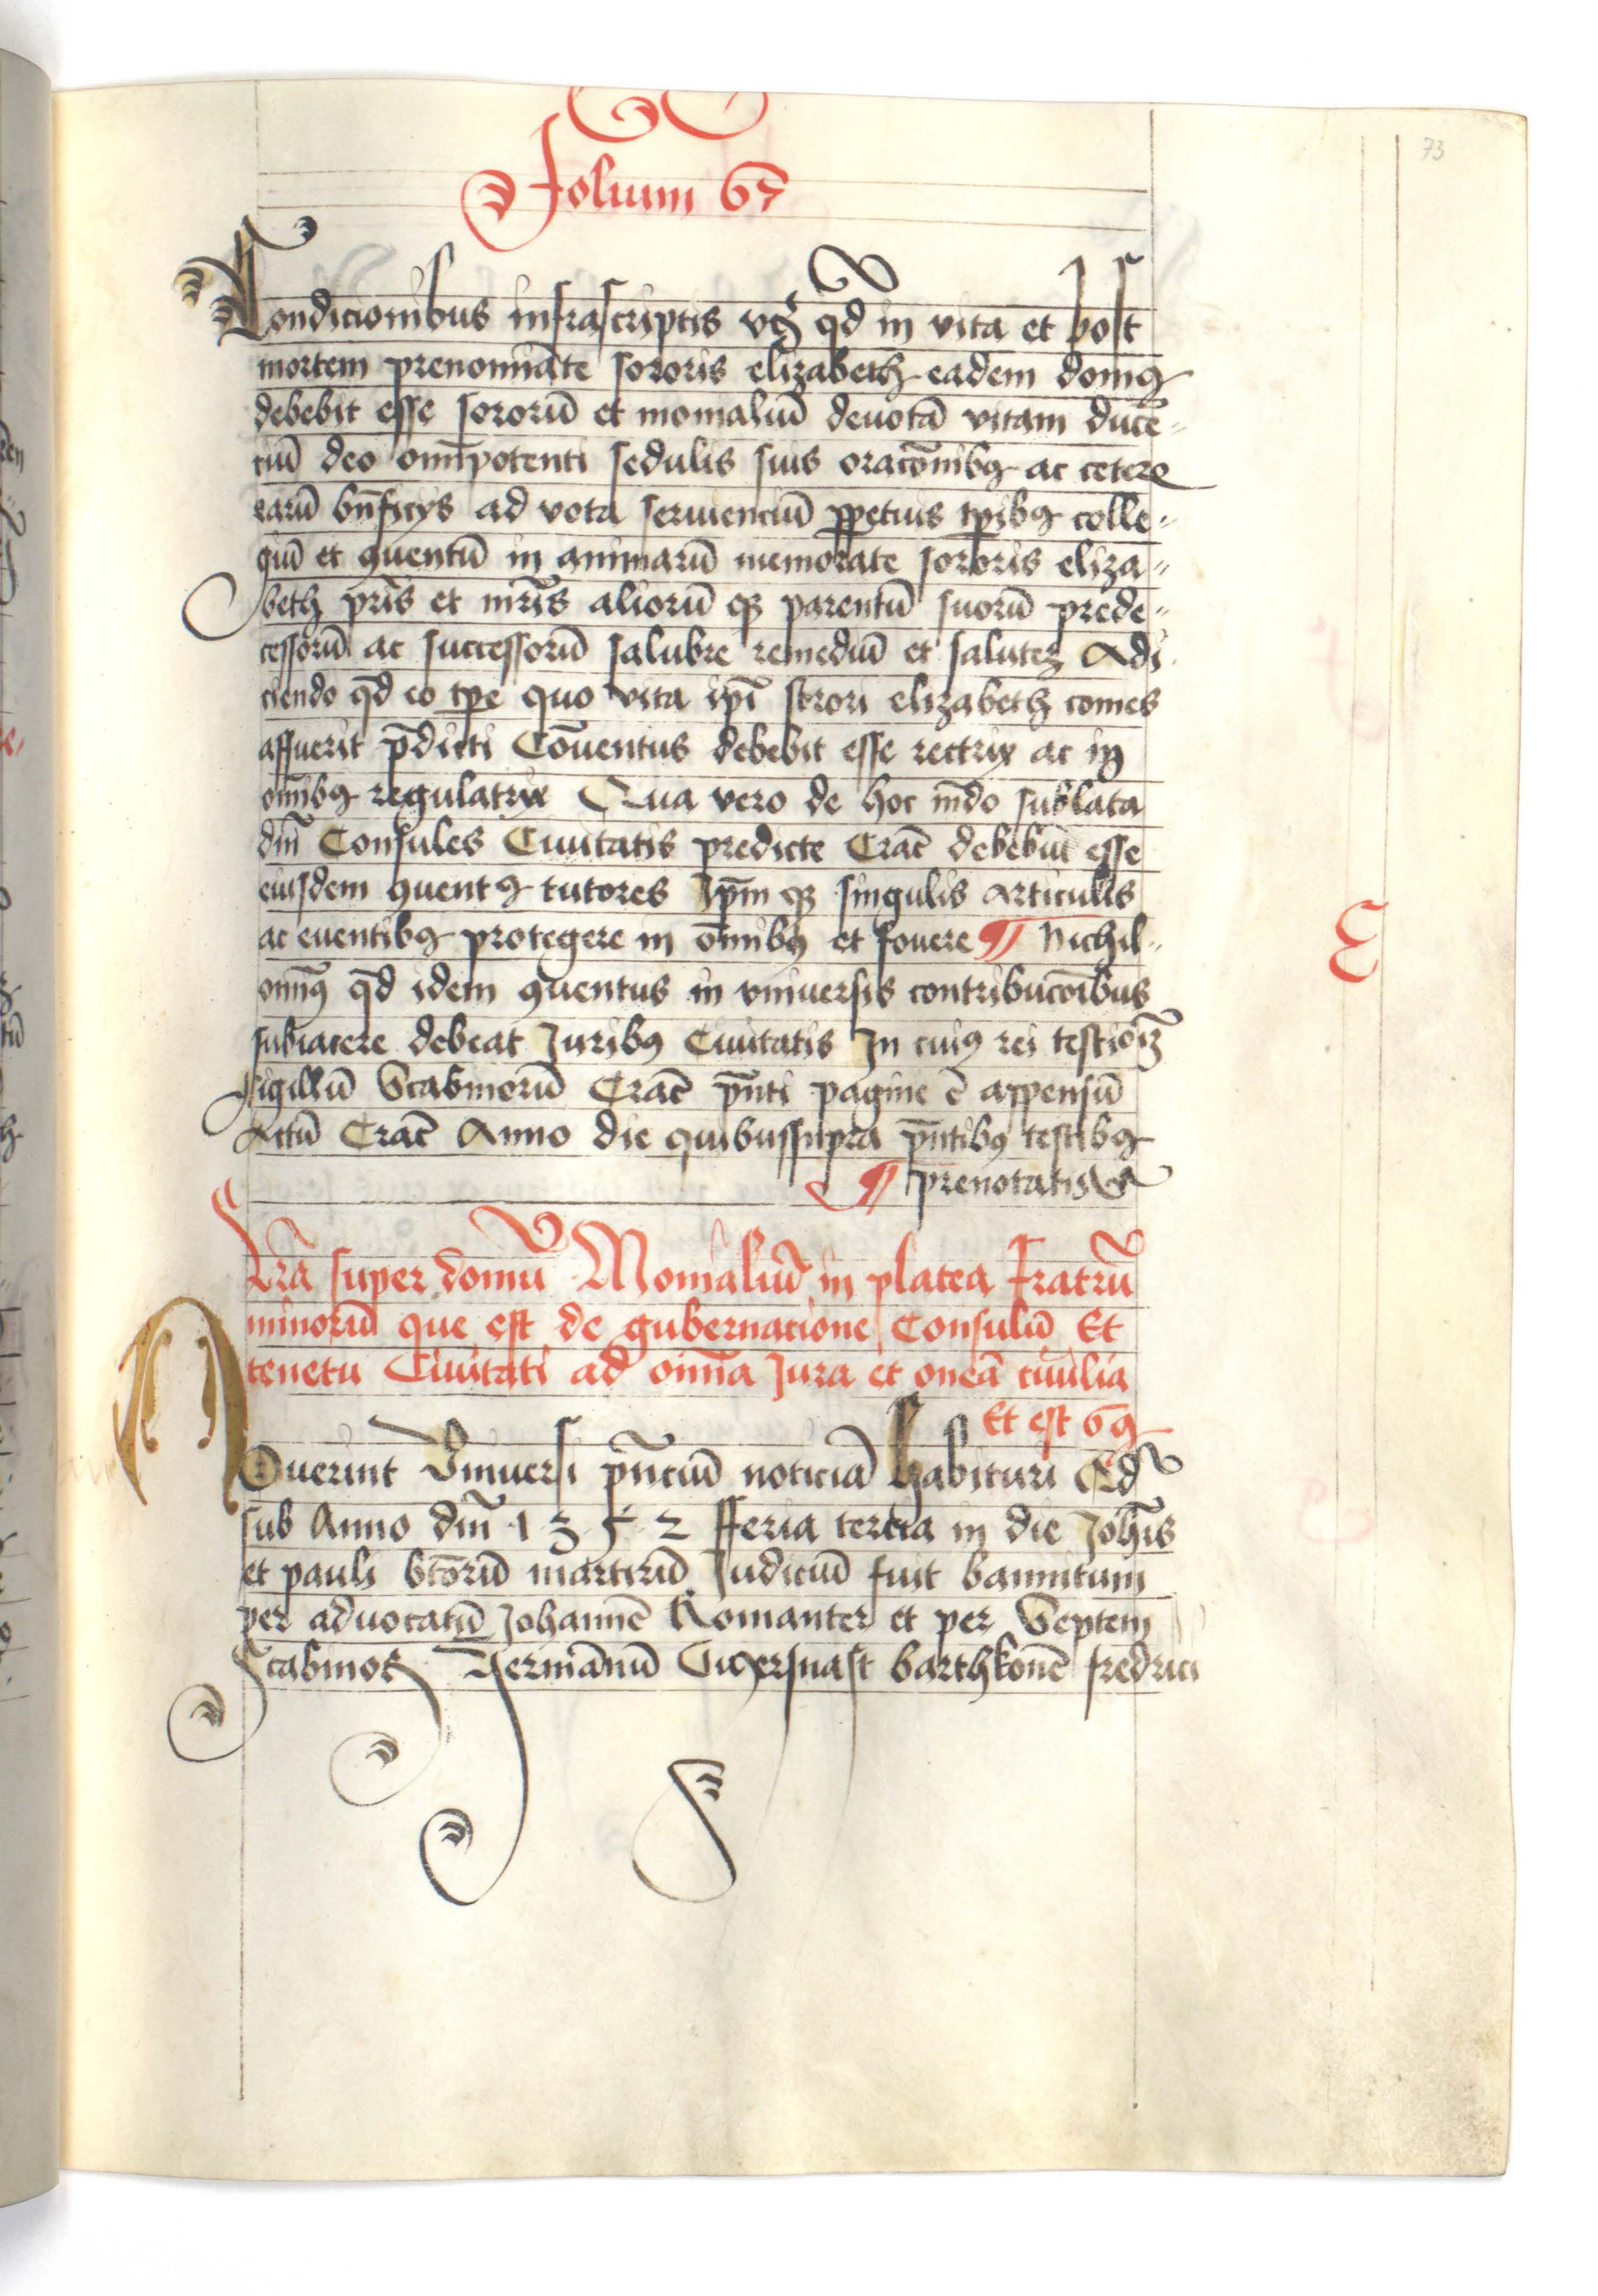 73
Folium 67
Condicionibus infrascriptis vcȝ qd in vita et post
mortem prenoīate sororis elizabeth eadem domꝯ
debebit esse sororū et monialiū deuotā vitam ducē-
ciū deo omīpotenti sedulis suis oracōnibꝯ ac cetere
earū bn̄ficys ad vota seruienciū ꝑpetuis tꝑibꝯ colle-
giū et ꝯuentū in animarū memorate sororis eliza-
beth pr̄is et mr̄is aliorū qȝ parentū suorū prede-
cessorū ac successorū salubre remediū et saluteȝ Adi
ciendo qd eo tꝑe quo vita ip̄i sorori elizabeth comes
affuerit p̄dicti Cōuentus debebit esse rectrix ac in
om̄ibꝯ regulatrix Qua vero de hoc mūdo sublata
dn̄i Consules Ciuitatis predicte Crac̄ debebūt esse
eiusdem ꝯuentꝯ tutores Ip̄m qȝ singulis articulis
ac euentibꝯ protegere in om̄ibꝯ et fouere ¶ Nichil-
omīꝯ qd idem ꝯuentus in vniuersis contribucōibus
subiacere debeat Juribꝯ Ciuitatis In cuiꝯ rei testiōiȝ
sigillū Scabinorū Crac̄ p̄nti pagine ē appensū
Actū Crac̄ Anno die quibussupra p̄ntibꝯ testibꝯ
¶ prenotatis
E
Lr̄a super domū Monialiū in platea fratrū
minorū que est de gubernacione Consulū Et
tenetu Ciuitati ad om̄ia Jura et oneā ciuilia
Et est 69
NOuerint Vniuersi pn̄ciū noticiā habituri Qd
sub Anno dn̄i 1352 fferia tercia in die Joh̄is
et pauli btōrū martirū Judiciū fuit bannitum
per aduocatū Johannē Romanter et per Septem
Scabinos Hermānū Cwersnast barthkonē fredrici